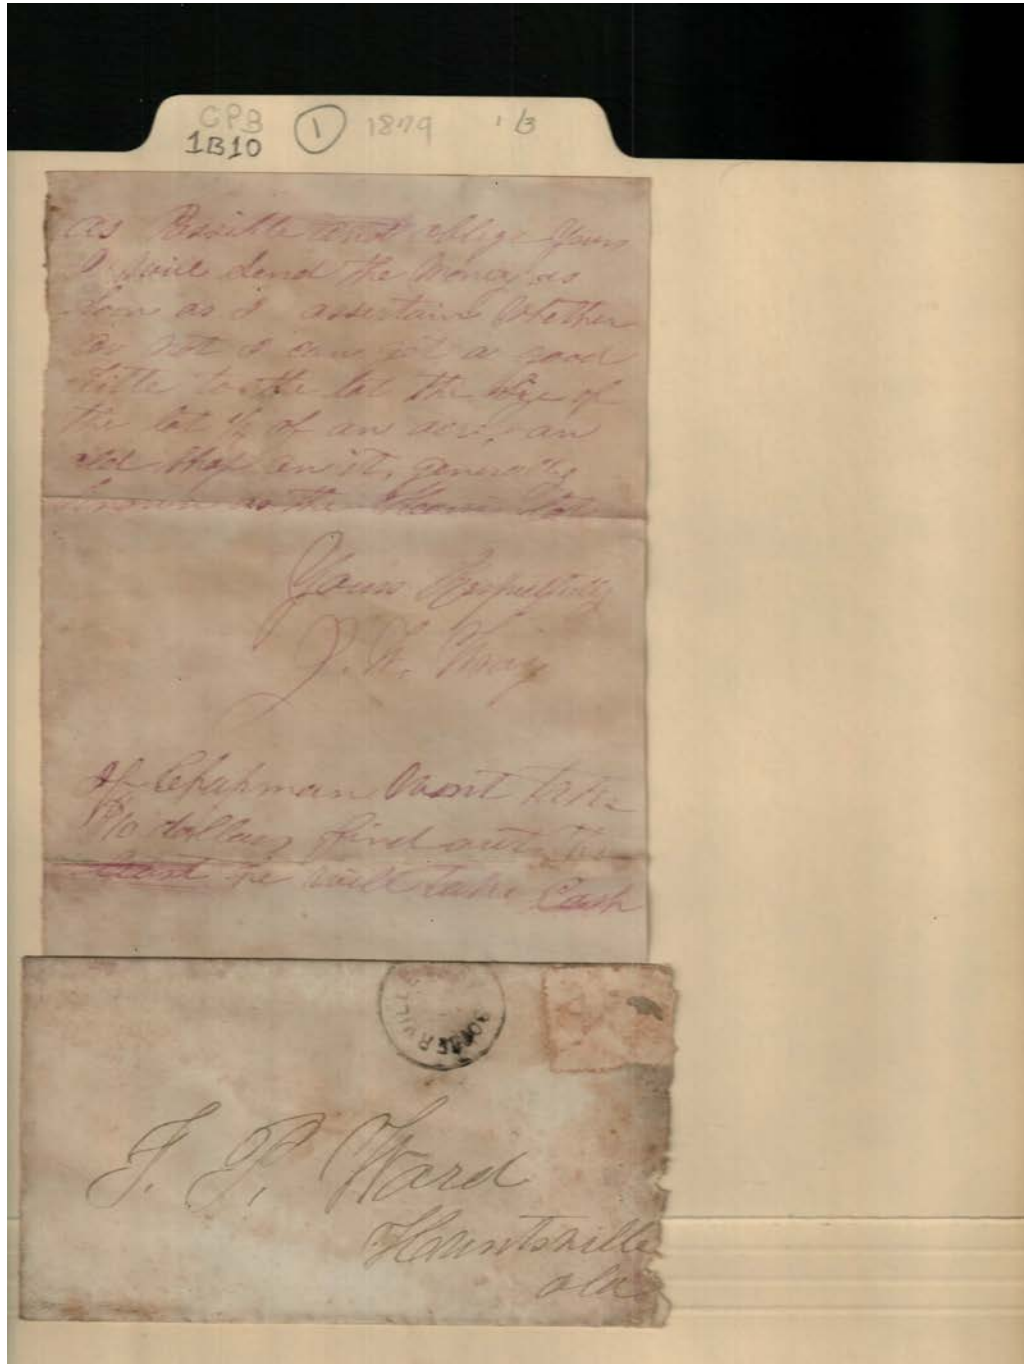 CPB
1B10 1 1879 1/3
as Possible and oblige yours
I will send the Money as
soon as I assertain Whether
or not I can get a good
title to the lot the size of
the lot ½ of an acre, an
old shop on it, generally
known as the
Yours Respectfully
J.
If Chapman Wont take
dollars find out the
least he will take Cash
SOMERVILL
T. P. Ward
Huntsville
ala